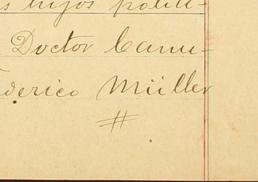 s hijos políti-
Doctor Camu-
derico Müller
#